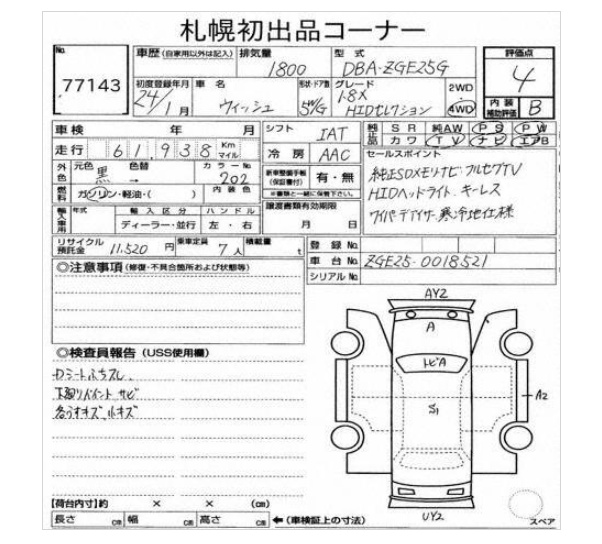 札幌初出品コーナー
No. 77143
車歴 (自家用以外は記入) 排気量 1800 型式 DBA-ZGE25G 評価点 4
初度登録年月 24年/1月 車名 ウィッシュ 形状・ドア数 5W/G グレード 1.8X HIDセレクション 2WD 4WD 内装補助評価 B
車検 年 月 シフト IAT 純正品 SR 純AW PS PW
カワ TV ナビ エアB
走行 61,938 Km マイル 冷房 AAC セールスポイント
外色 元色 黒 色替 → カラーNo. 202 新車整備手帳 (保証書付) 有・無 純正SDメモリナビ フルセグTV
※書類と一緒に保管下さい。
燃料 ガソリン・軽油・( ) 内装色 HIDヘッドライト キーレス
輸入車用 年式 輸入区分 ハンドル 譲渡書類有効期限 ワイパーデアイサー 寒冷地仕様
ディーラー・並行 左・右 月 日
リサイクル預託金 11,520円 乗車定員 7人 積載量 t 登録No.
車台No. ZGE25-0018521
シリアルNo.
◎注意事項 (修復・不具合箇所および状態等)
◎検査員報告 (USS使用欄)
Dシートふちスレ
下廻りペイント サビ
各うすキズ、小キズ
AY2
A
トビA
S1
A2
UY2
スペア
【荷台内寸】約 × × (cm)
長さ cm 幅 cm 高さ cm ←(車検証上の寸法)